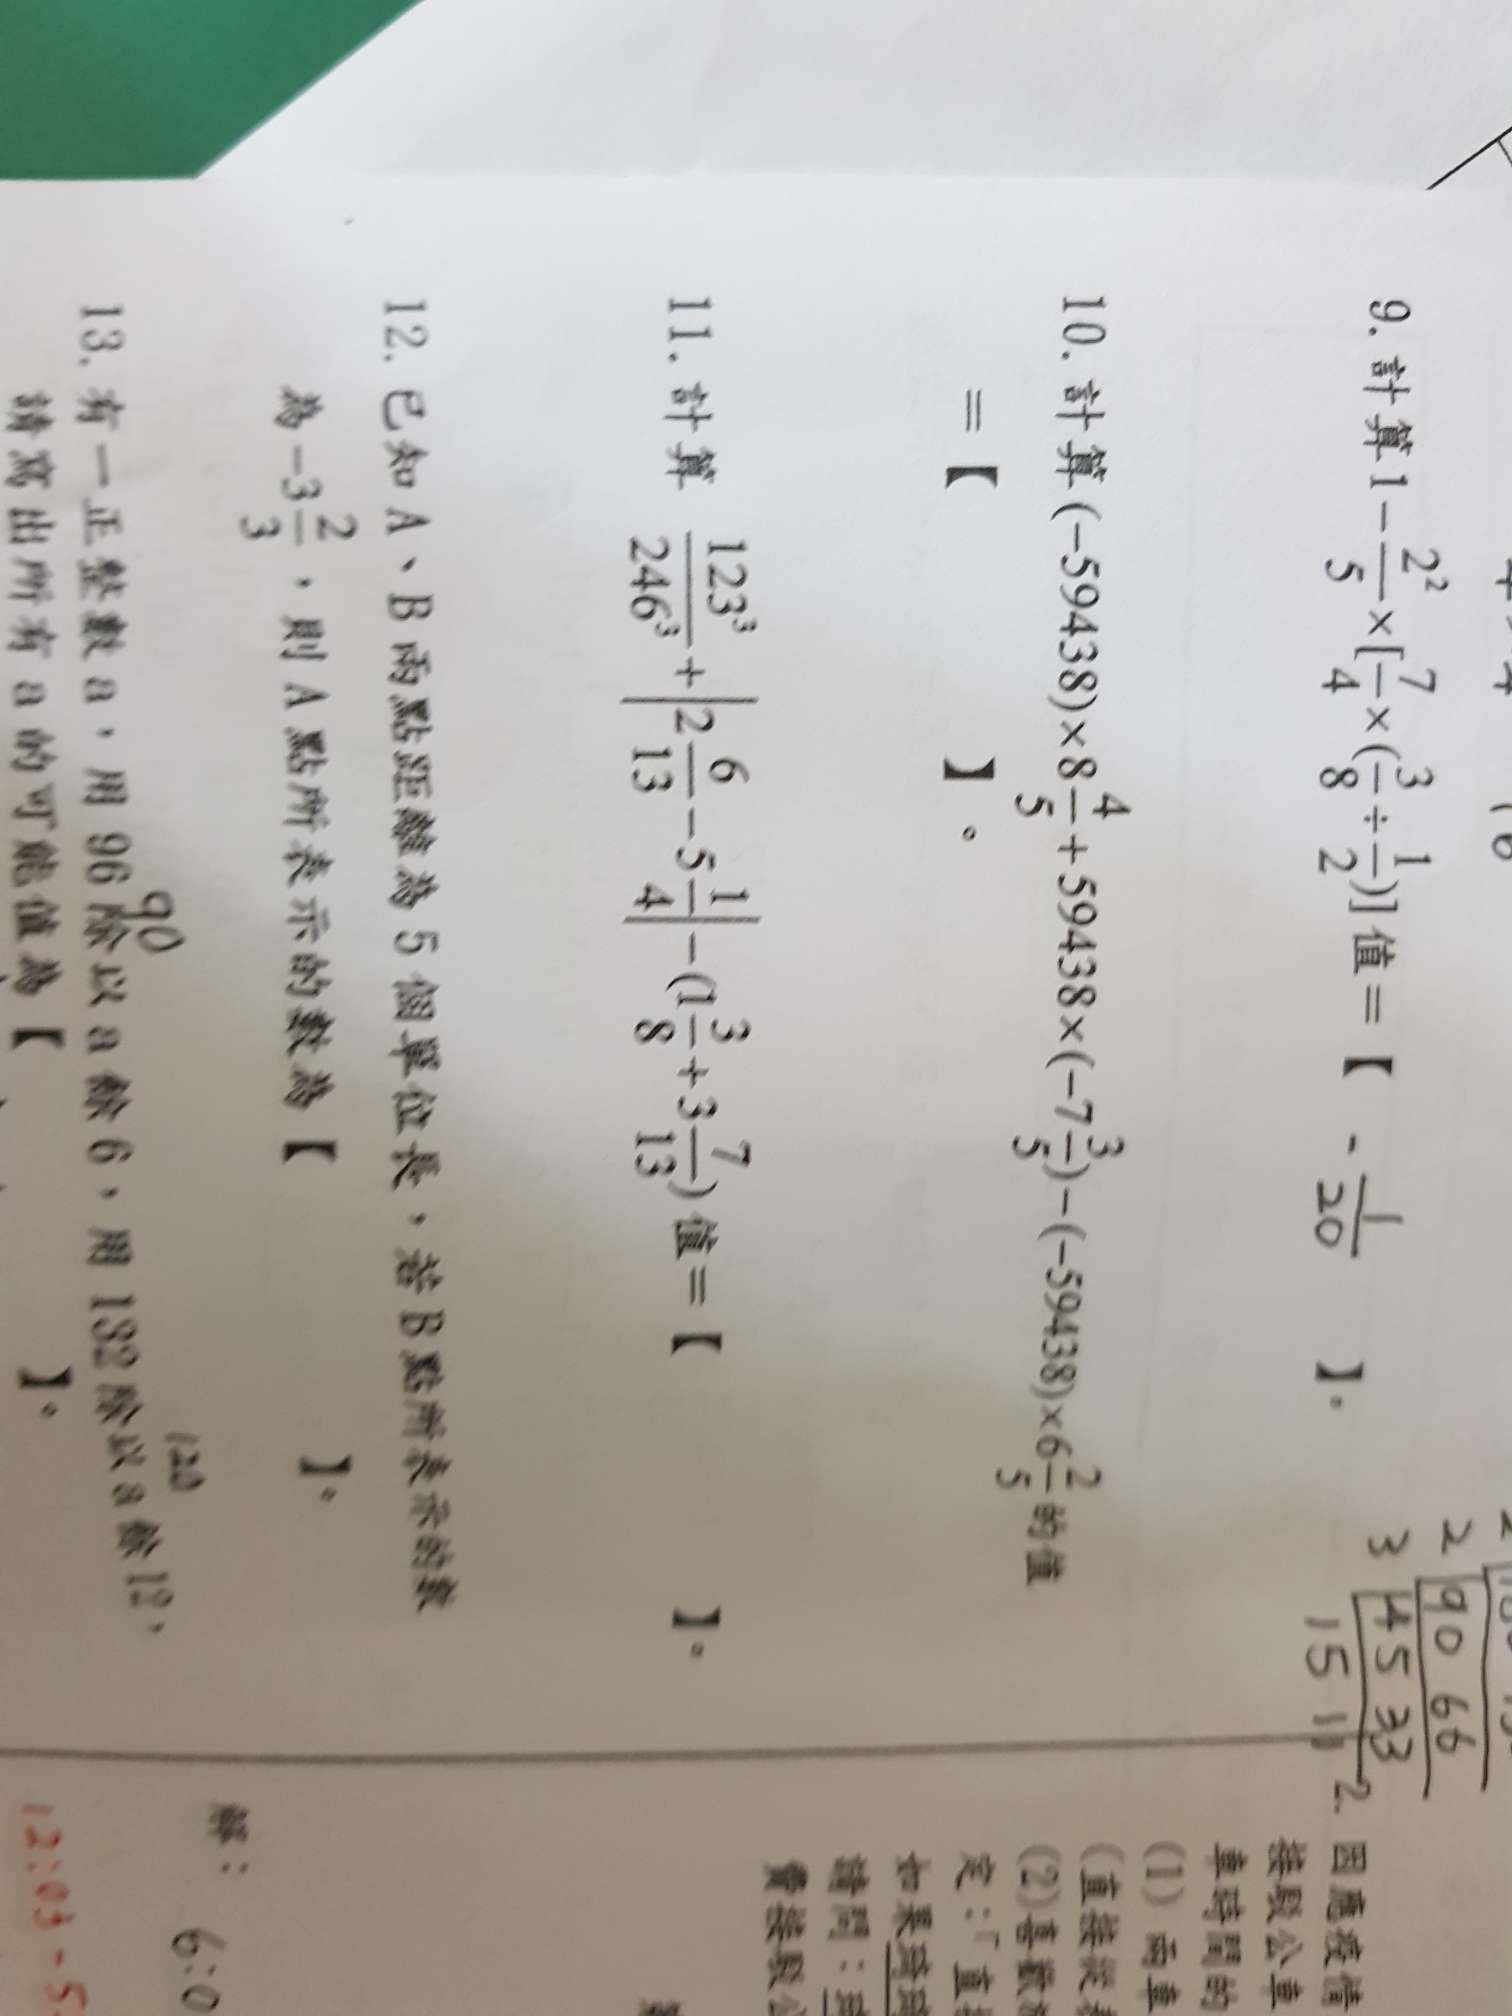 9. 計算1－2²/5×[7/4×(3/8÷1/2)]值＝【 -1/20 】。
10. 計算(−59438)×8 4/5＋59438×(−7 3/5)−(−59438)×6 2/5的值
＝【 】。
11. 計算 123³/246³＋|2 6/13−5 1/4|−(1 3/8＋3 7/13)值＝【 】。
12. 已知 A、B 兩點距離為 5 個單位長，若 B 點所表示的數
為−3 2/3，則 A 點所表示的數為【 】。
90
120
13. 有一正整數 a，用 96 除以 a 餘 6，用 132 除以 a 餘 12，
請寫出所有 a 的可能值為【 】。
2 90 66
3 45 33
15 11
2. 因應疫情
接駁公車
車時間的
(1) 兩車
(直接從
(2)喜歡
定：「直接
如果
請問：
費接駁公
解：
6:0
12:03-5